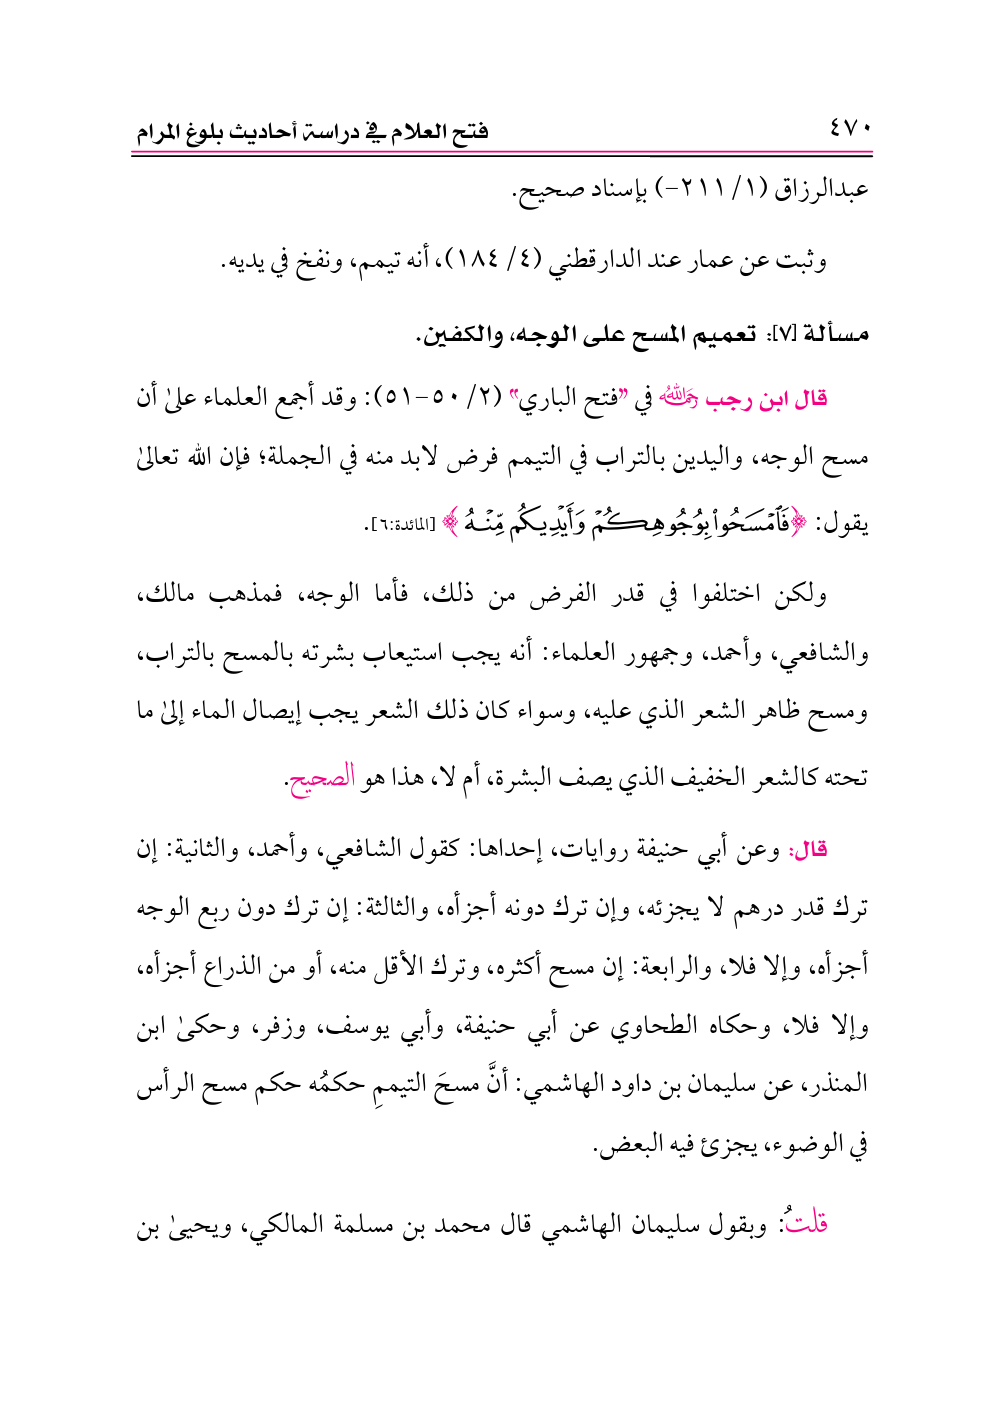 ٤٧٠
فتح العلام في دراسة أحاديث بلوغ المرام
عبدالرزاق (١/ ٢١١-) بإسناد صحيح.
وثبت عن عمار عند الدارقطني (٤/ ١٨٤)، أنه تيمم، ونفخ في يديه.
مسألة [٧]: تعميم المسح على الوجه، والكفين.
قال ابن رجب رَحِمَهُ اللهُ في "فتح الباري" (٢/ ٥٠-٥١): وقد أجمع العلماء علىٰ أن
مسح الوجه، واليدين بالتراب في التيمم فرض لابد منه في الجملة؛ فإن الله تعالىٰ
يقول: ﴿فَٱمۡسَحُواْ بِوُجُوهِكُمۡ وَأَيۡدِيكُم مِّنۡهُ﴾ [المائدة:٦].
ولكن اختلفوا في قدر الفرض من ذلك، فأما الوجه، فمذهب مالك،
والشافعي، وأحمد، وجمهور العلماء: أنه يجب استيعاب بشرته بالمسح بالتراب،
ومسح ظاهر الشعر الذي عليه، وسواء كان ذلك الشعر يجب إيصال الماء إلىٰ ما
تحته كالشعر الخفيف الذي يصف البشرة، أم لا، هذا هو الصحيح.
قال: وعن أبي حنيفة روايات، إحداها: كقول الشافعي، وأحمد، والثانية: إن
ترك قدر درهم لا يجزئه، وإن ترك دونه أجزأه، والثالثة: إن ترك دون ربع الوجه
أجزأه، وإلا فلا، والرابعة: إن مسح أكثره، وترك الأقل منه، أو من الذراع أجزأه،
وإلا فلا، وحكاه الطحاوي عن أبي حنيفة، وأبي يوسف، وزفر، وحكىٰ ابن
المنذر، عن سليمان بن داود الهاشمي: أنَّ مسحَ التيممِ حكمُه حكم مسح الرأس
في الوضوء، يجزئ فيه البعض.
قلتُ: وبقول سليمان الهاشمي قال محمد بن مسلمة المالكي، ويحيىٰ بن